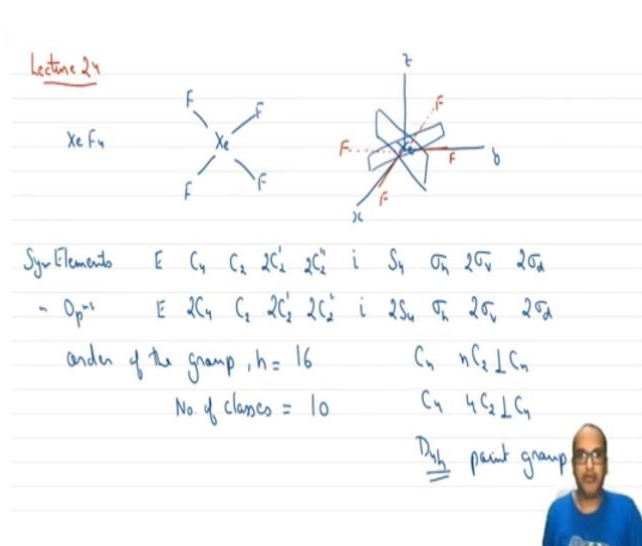 Lecture 24
XeF₄
F F
Xe
F F
z
F
F Xe F y
F
x
Sym Elements E C₄ C₂ 2C₂' 2C₂" i S₄ σh 2σv 2σd
" Opⁿˢ E 2C₄ C₂ 2C₂' 2C₂" i 2S₄ σh 2σv 2σd
order of the group, h = 16
No. of classes = 10
Cn nC₂ ⊥ Cn
C₄ 4C₂ ⊥ C₄
D₄h point group